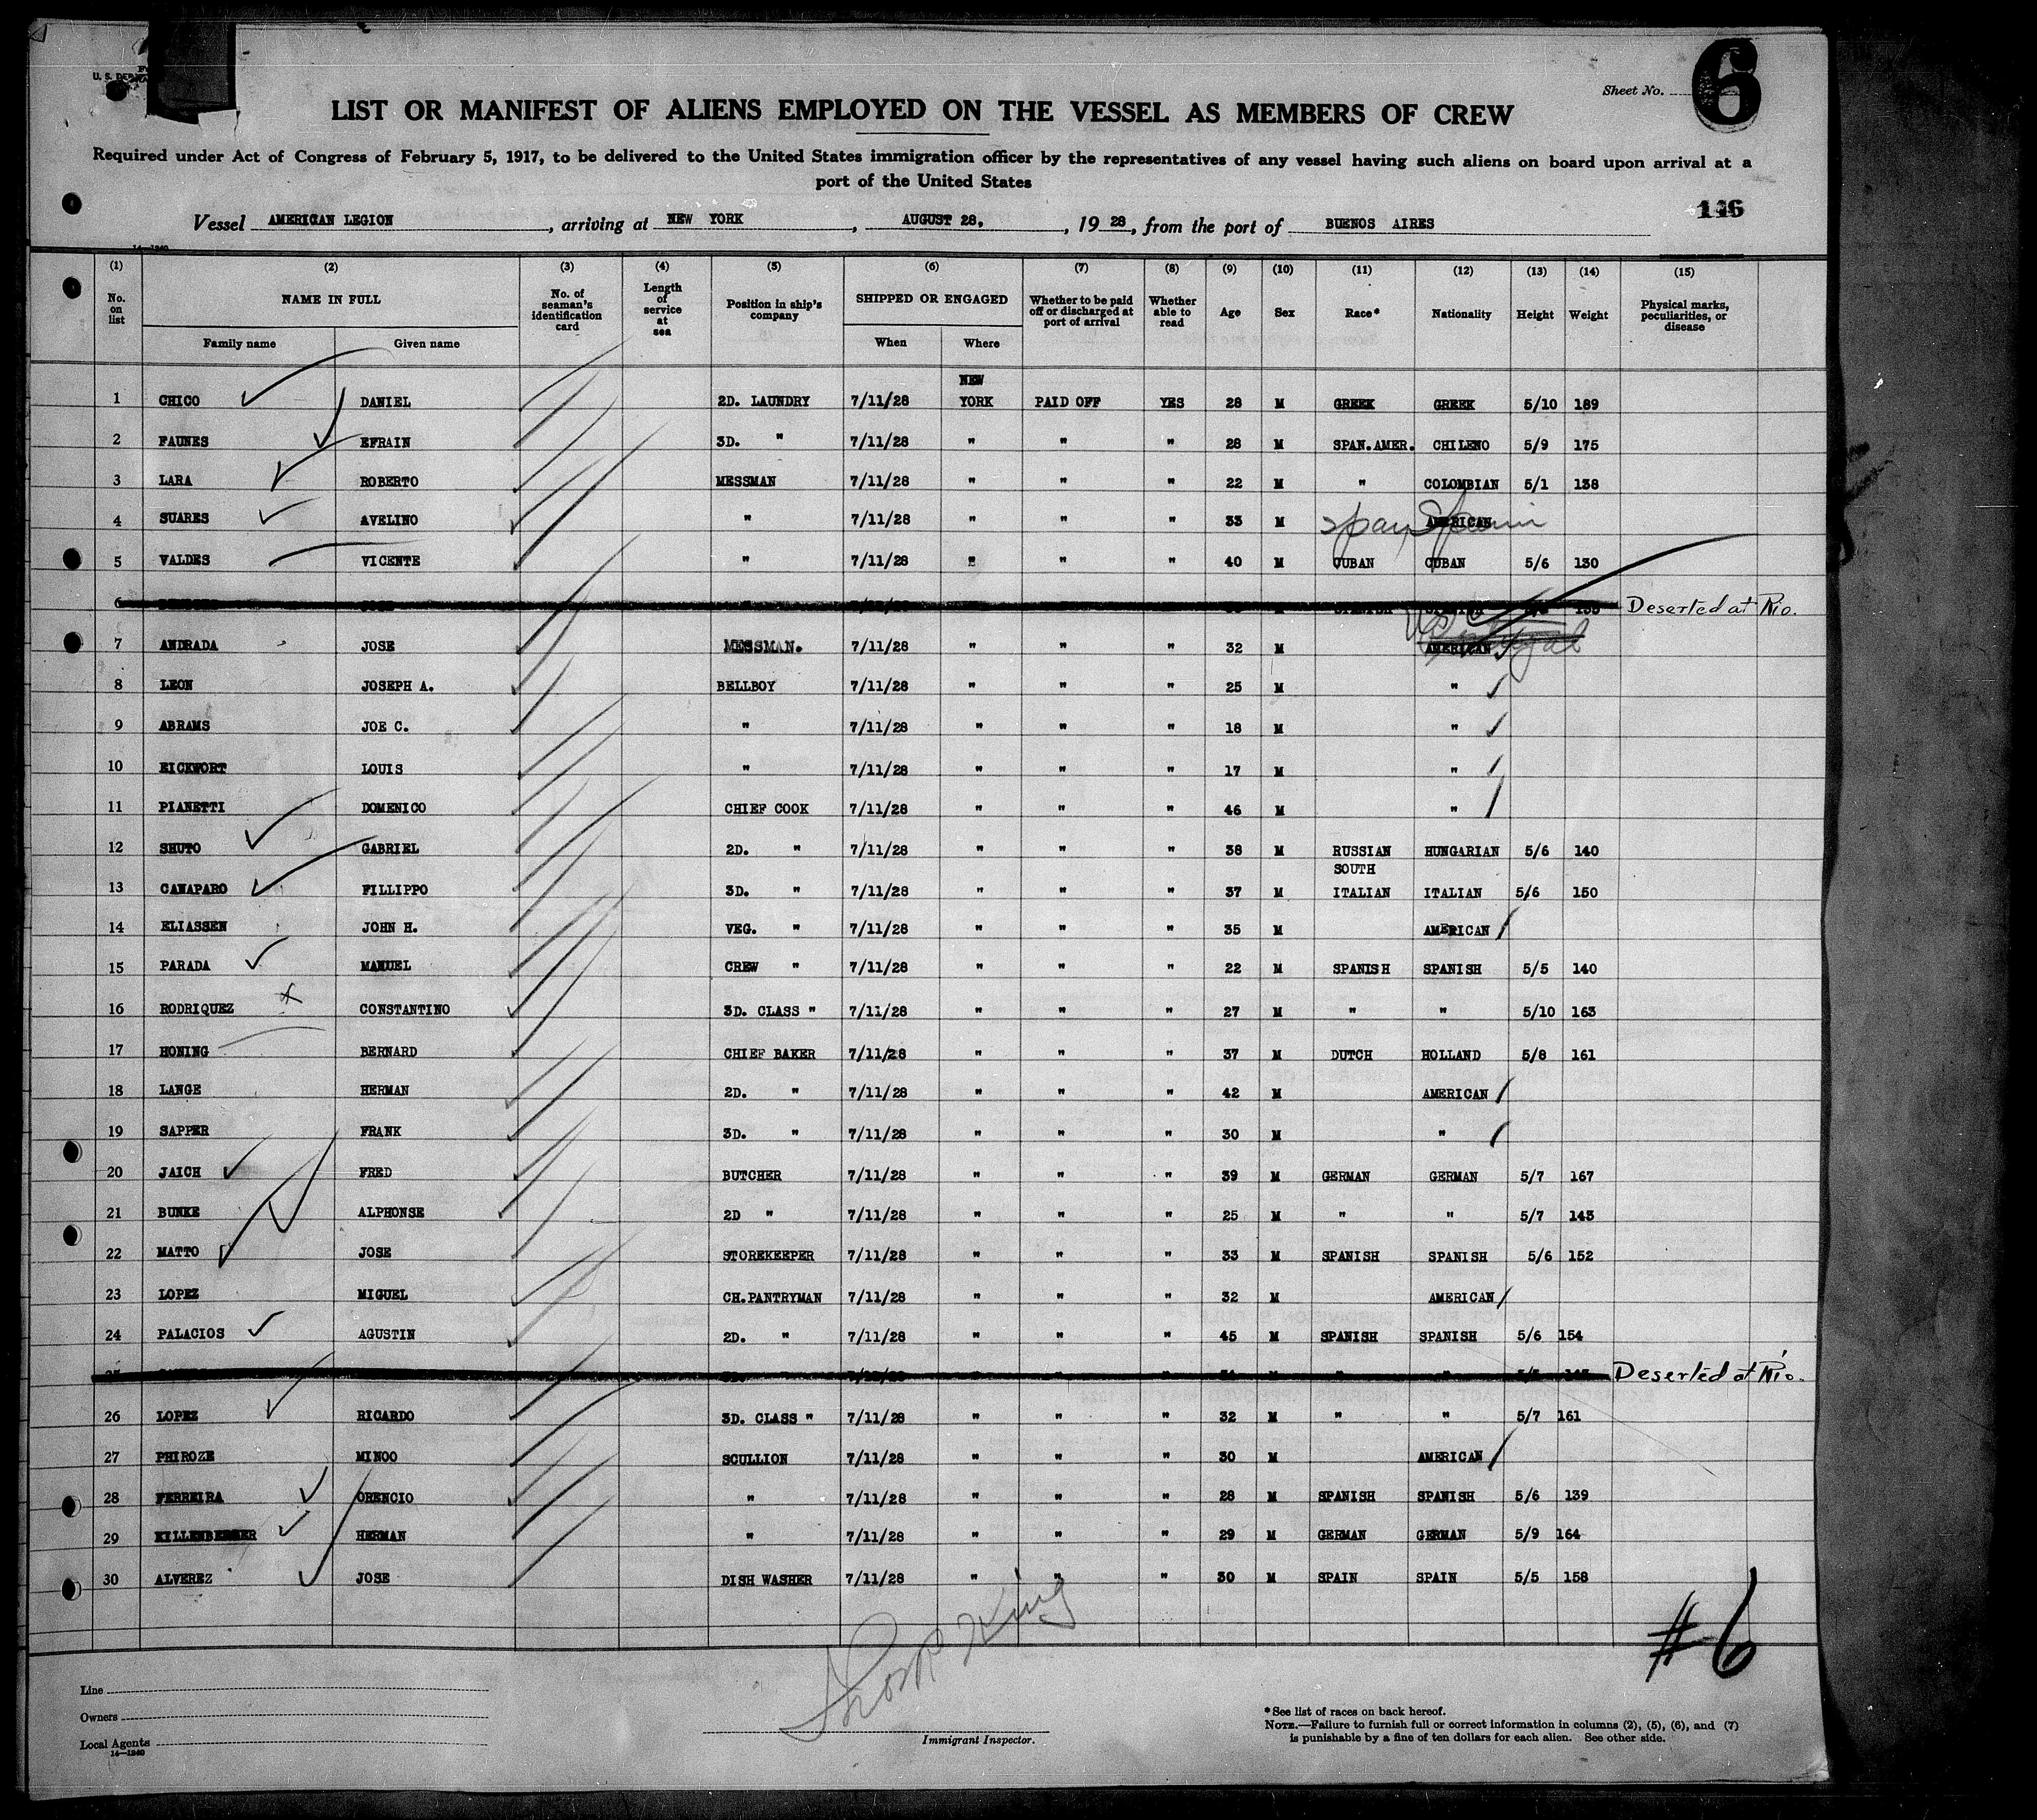 U. S. DEP
Sheet No. 6
LIST OR MANIFEST OF ALIENS EMPLOYED ON THE VESSEL AS MEMBERS OF CREW
Required under Act of Congress of February 5, 1917, to be delivered to the United States immigration officer by the representatives of any vessel having such aliens on board upon arrival at a
port of the United States
146
Vessel AMERICAN LEGION, arriving at NEW YORK, AUGUST 28, 1928, from the port of BUENOS AIRES
14—1240
(1) (2) (3) (4) (5) (6) (7) (8) (9) (10) (11) (12) (13) (14) (15)
No. on list NAME IN FULL No. of seaman's identification card Length of service at sea Position in ship's company SHIPPED OR ENGAGED Whether to be paid off or discharged at port of arrival Whether able to read Age Sex Race* Nationality Height Weight Physical marks, peculiarities, or disease
Family name Given name When Where
NEW
1 CHICO DANIEL 2D. LAUNDRY 7/11/28 YORK PAID OFF YES 28 M GREEK GREEK 5/10 189
2 FAUNES EFRAIN 3D. " 7/11/28 " " " 28 M SPAN.AMER. CHILENO 5/9 175
3 LARA ROBERTO MESSMAN 7/11/28 " " " 22 M " COLOMBIAN 5/1 138
4 SUARES AVELINO " 7/11/28 " " " 33 M Span AMERICAN Spain
5 VALDES VICENTE " 7/11/28 " " " 40 M CUBAN CUBAN 5/6 130
6 Deserted at Rio.
7 ANDRADA JOSE MESSMAN. 7/11/28 " " " 32 M AMERICAN US Portugal
8 LEON JOSEPH A. BELLBOY 7/11/28 " " " 25 M "
9 ABRAMS JOE C. " 7/11/28 " " " 18 M "
10 EICKWORT LOUIS " 7/11/28 " " " 17 M "
11 PIANETTI DOMENICO CHIEF COOK 7/11/28 " " " 46 M "
12 SHUTO GABRIEL 2D. " 7/11/28 " " " 38 M RUSSIAN HUNGARIAN 5/6 140
SOUTH
13 CANAPARO FILLIPPO 3D. " 7/11/28 " " " 37 M ITALIAN ITALIAN 5/6 150
14 ELIASSEN JOHN H. VEG. " 7/11/28 " " " 35 M AMERICAN
15 PARADA MANUEL CREW " 7/11/28 " " " 22 M SPANISH SPANISH 5/5 140
16 RODRIQUEZ X CONSTANTINO 3D. CLASS " 7/11/28 " " " 27 M " " 5/10 163
17 HONING BERNARD CHIEF BAKER 7/11/28 " " " 37 M DUTCH HOLLAND 5/8 161
18 LANGE HERMAN 2D. " 7/11/28 " " " 42 M AMERICAN
19 SAPPER FRANK 3D. " 7/11/28 " " " 30 M "
20 JAICH FRED BUTCHER 7/11/28 " " " 39 M GERMAN GERMAN 5/7 167
21 BUNKE ALPHONSE 2D " 7/11/28 " " " 25 M " " 5/7 143
22 MATTO JOSE STOREKEEPER 7/11/28 " " " 33 M SPANISH SPANISH 5/6 152
23 LOPEZ MIGUEL CH.PANTRYMAN 7/11/28 " " " 32 M AMERICAN
24 PALACIOS AGUSTIN 2D. " 7/11/28 " " " 45 M SPANISH SPANISH 5/6 154
Deserted at Rio.
26 LOPEZ RICARDO 3D. CLASS " 7/11/28 " " " 32 M " " 5/7 161
27 PHIROZE MINOO SCULLION 7/11/28 " " " 30 M AMERICAN
28 FERREIRA ORENCIO " 7/11/28 " " " 28 M SPANISH SPANISH 5/6 139
29 KILLENBERGER HERMAN " 7/11/28 " " " 29 M GERMAN GERMAN 5/9 164
30 ALVEREZ JOSE DISH WASHER 7/11/28 " " " 30 M SPAIN SPAIN 5/5 158
#6
Line
Owners
Local Agents
14—1240
Immigrant Inspector.
*See list of races on back hereof.
NOTE.—Failure to furnish full or correct information in columns (2), (5), (6), and (7)
is punishable by a fine of ten dollars for each alien. See other side.